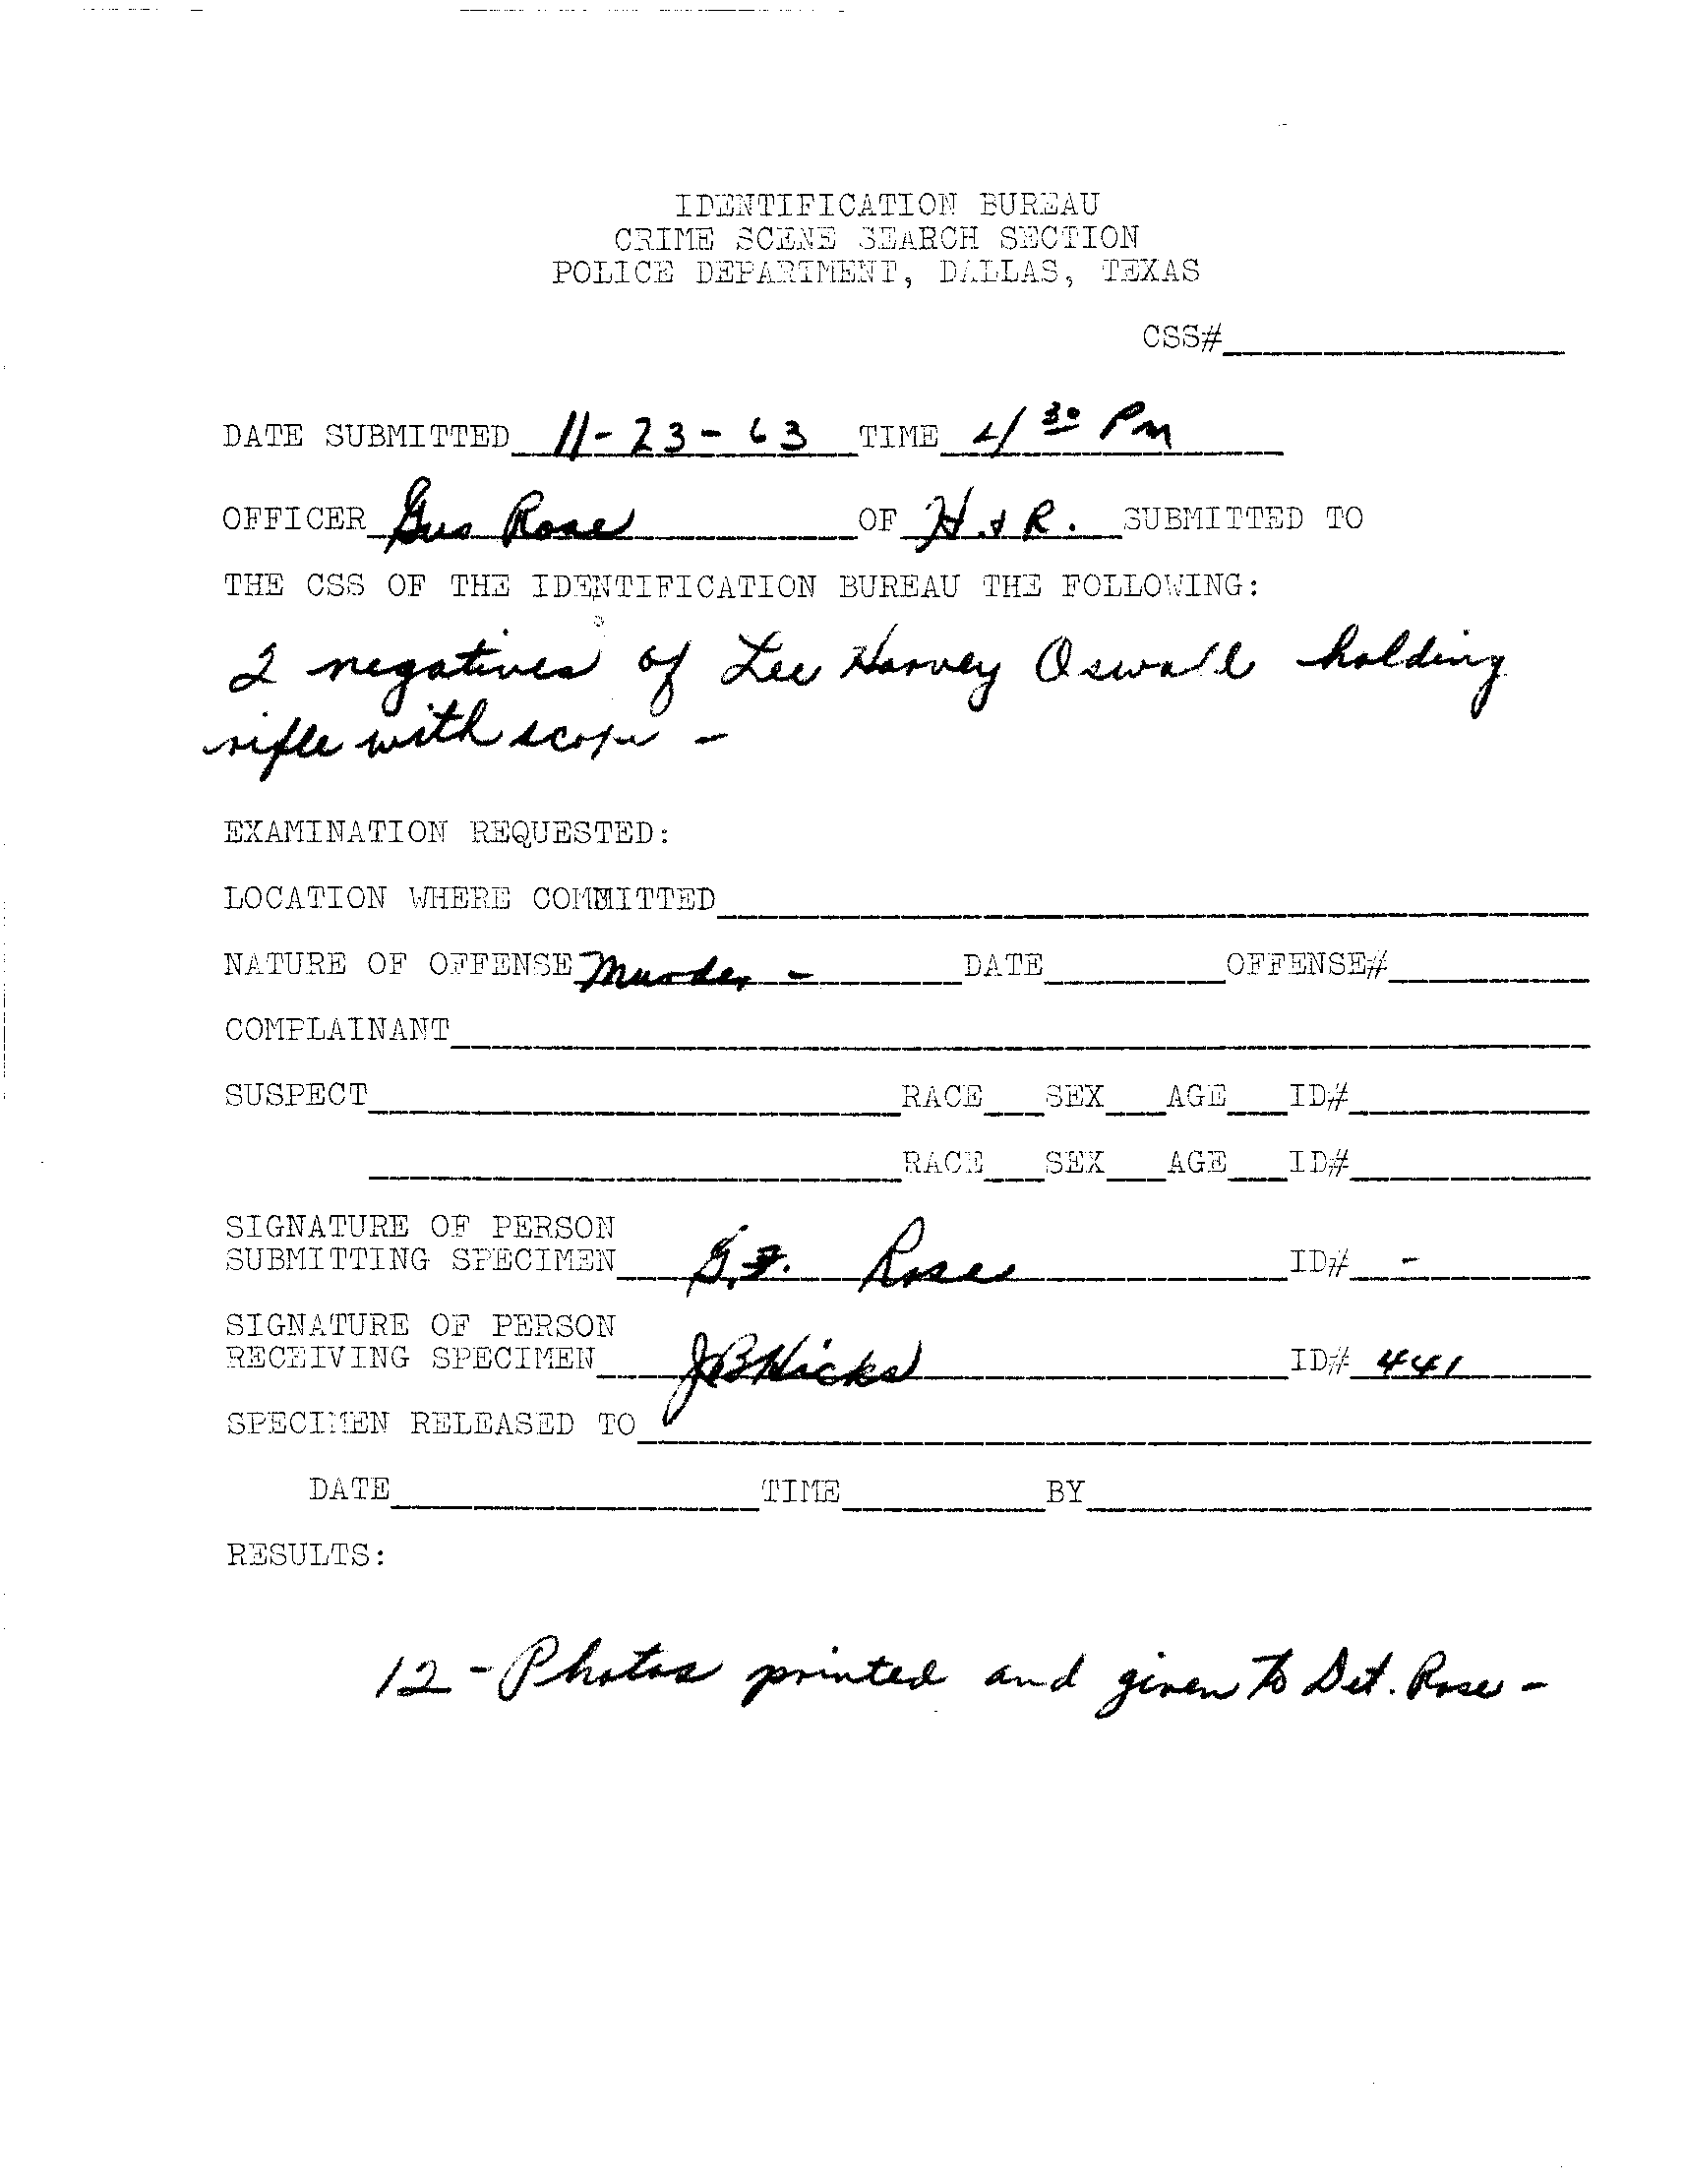 IDENTIFICATION BUREAU
CRIME SCENE SEARCH SECTION
POLICE DEPARTMENT, DALLAS, TEXAS
CSS#
DATE SUBMITTED 11-23-63 TIME 4 30 PM
OFFICER Gus Rose OF H & R. SUBMITTED TO
THE CSS OF THE IDENTIFICATION BUREAU THE FOLLOWING:
2 negatives of Lee Harvey Oswald holding
rifle with scope -
EXAMINATION REQUESTED:
LOCATION WHERE COMMITTED
NATURE OF OFFENSE Murder - DATE OFFENSE#
COMPLAINANT
SUSPECT RACE SEX AGE ID#
RACE SEX AGE ID#
SIGNATURE OF PERSON
SUBMITTING SPECIMEN G.F. Rose ID# -
SIGNATURE OF PERSON
RECEIVING SPECIMEN JB Hicks ID# 441
SPECIMEN RELEASED TO
DATE TIME BY
RESULTS:
12 - Photos printed and given to Det. Rose -